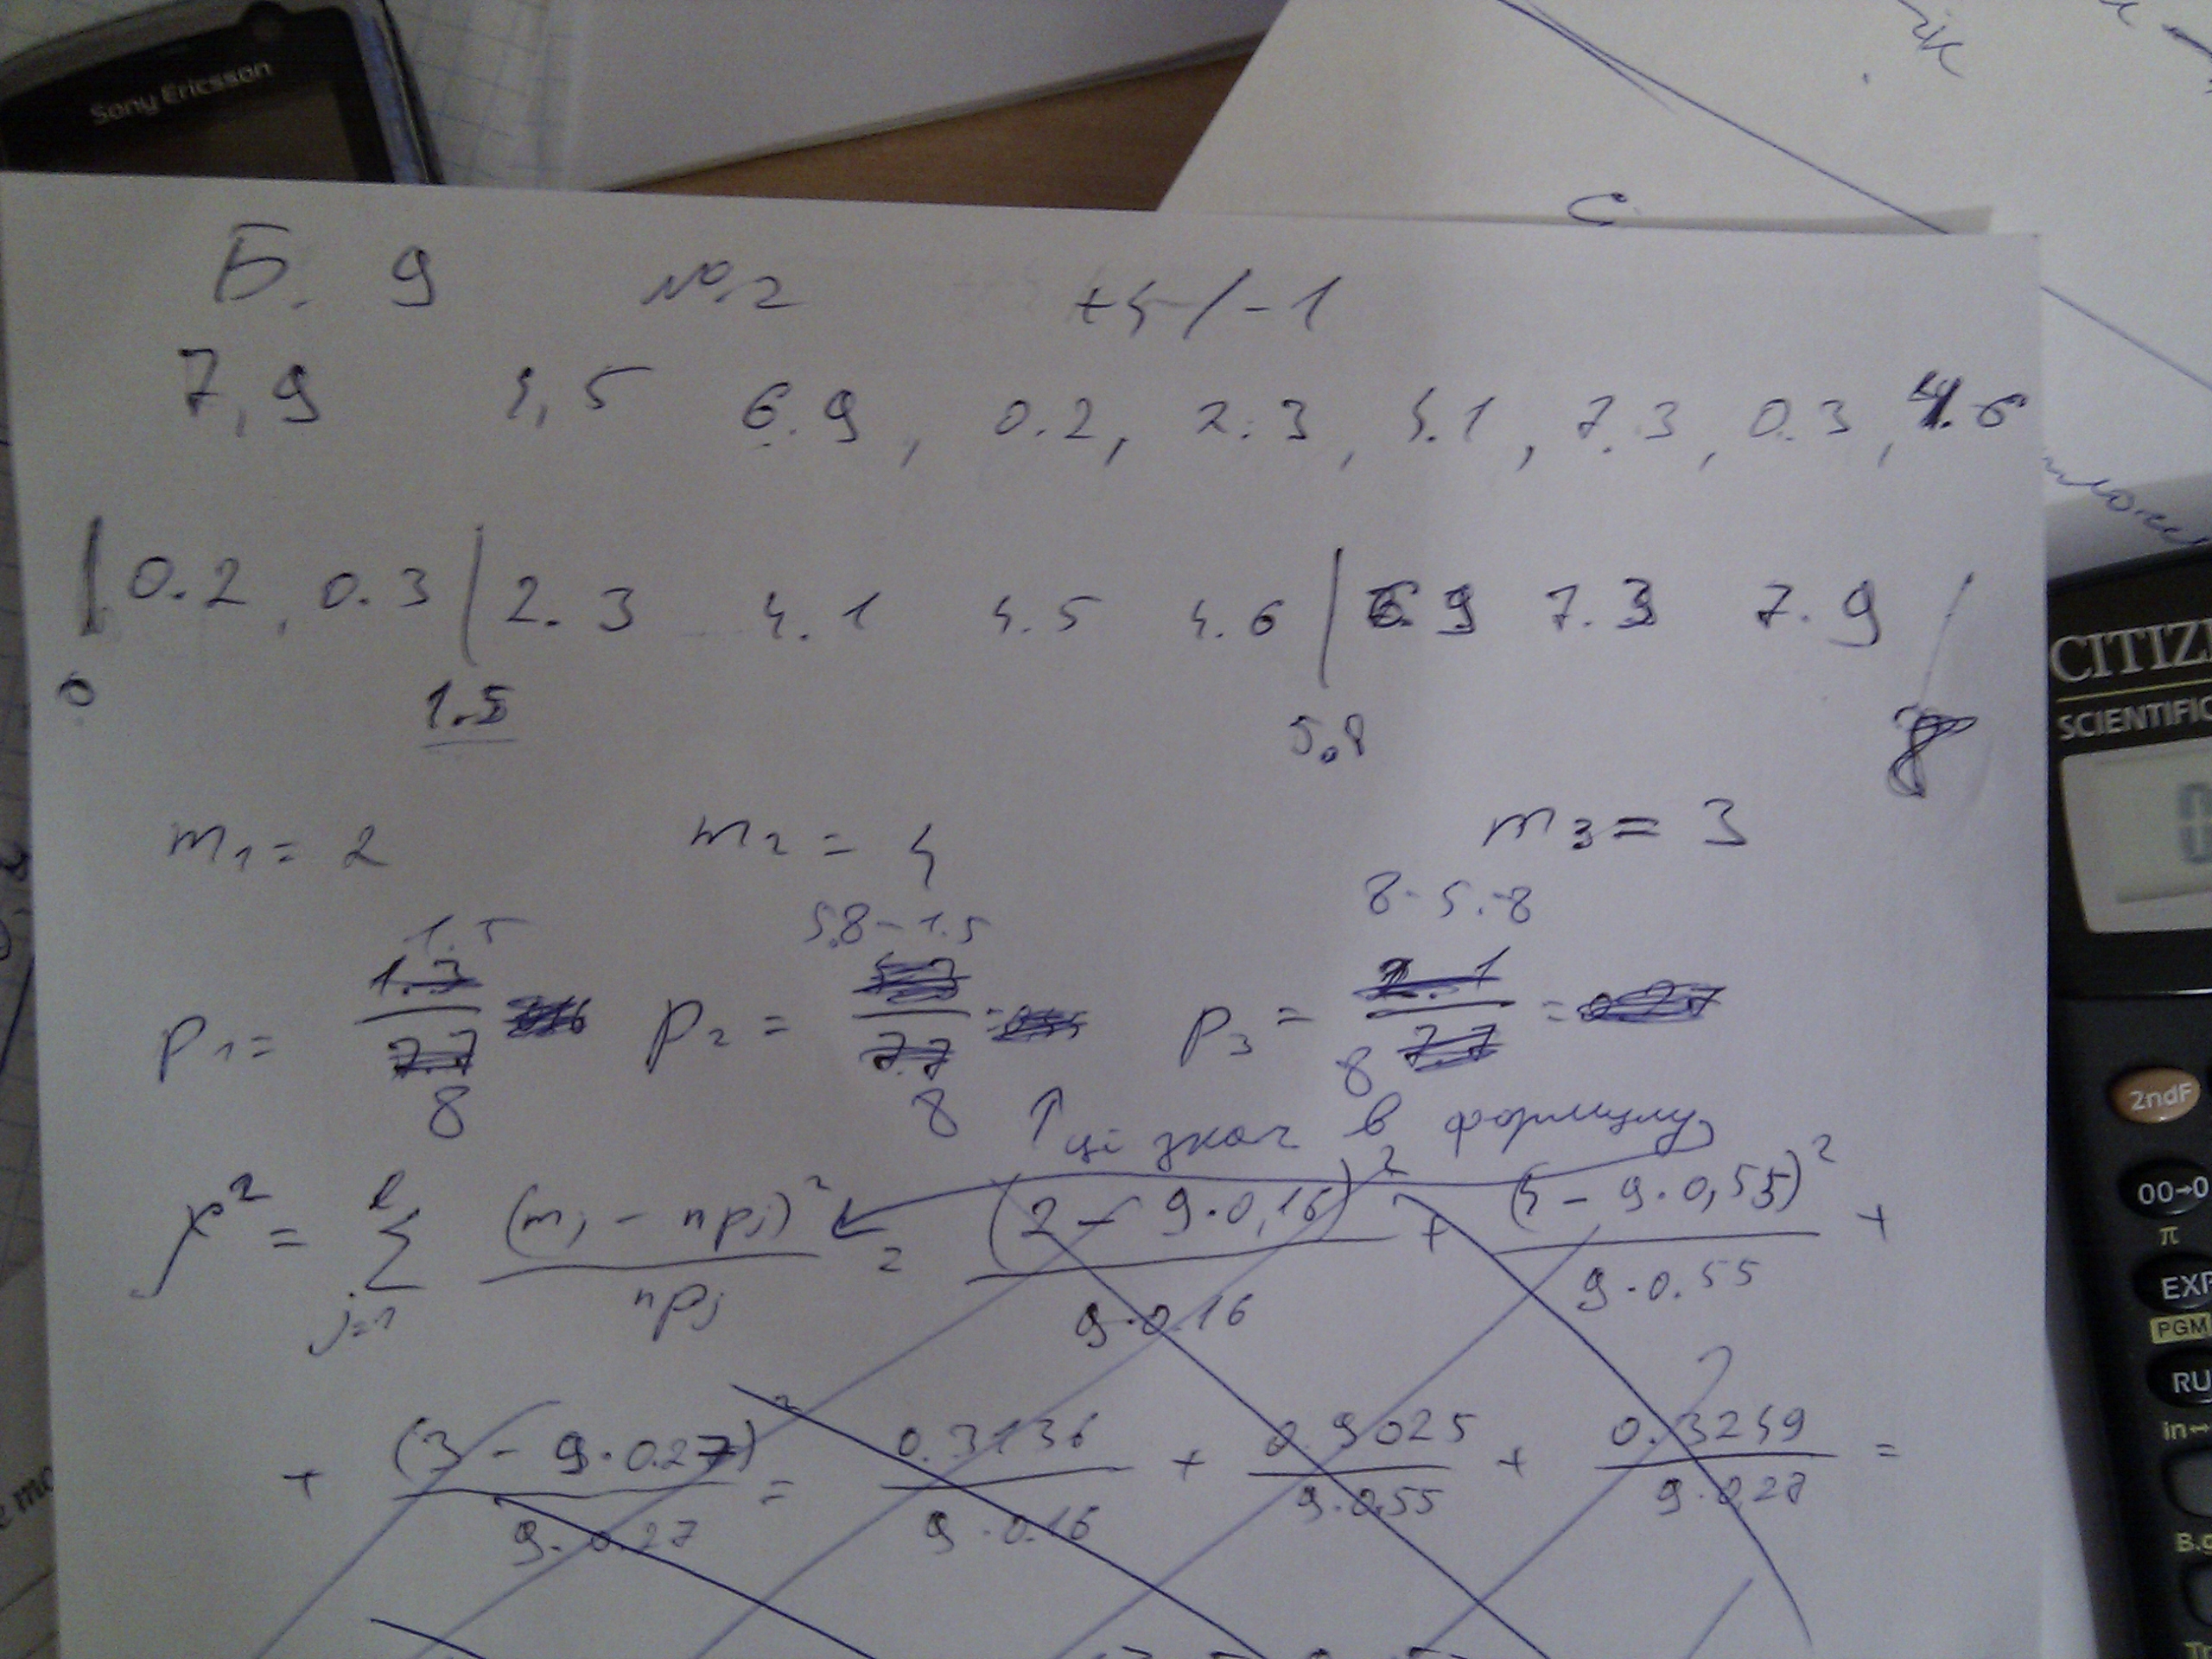 Sony Ericsson
ік
с
Б. 9 №2 +4/-1
7,9 4,5 6.9, 0.2, 2.3, 4.1, 7.3, 0.3, 4.6
0.2, 0.3 | 2.3 4.1 4.5 4.6 | 6.9 7.3 7.9 /
0 1.5 5.8 8
m1 = 2 m2 = 4 m3 = 3
1.5 5.8-1.5 8-5.8
1.3 2.1
p1 = p2 = p3 =
7.7 7.7 7.7
8 8 8
↑ ці знач в формулу
χ² = l Σ j=1 (mj - npj)² / npj = (2 - 9·0,16)² / 9·0.16 + (4 - 9·0,55)² / 9·0.55 +
+ (3 - 9·0.27)² / 9·0.27 = 0.3136 / 9·0.16 + 0.9025 / 9·0.55 + 0.3249 / 9·0.27 =
CITIZ
SCIENTIFIC
2ndF
00→0
π
EXP
PGM
RU
in↔
B.